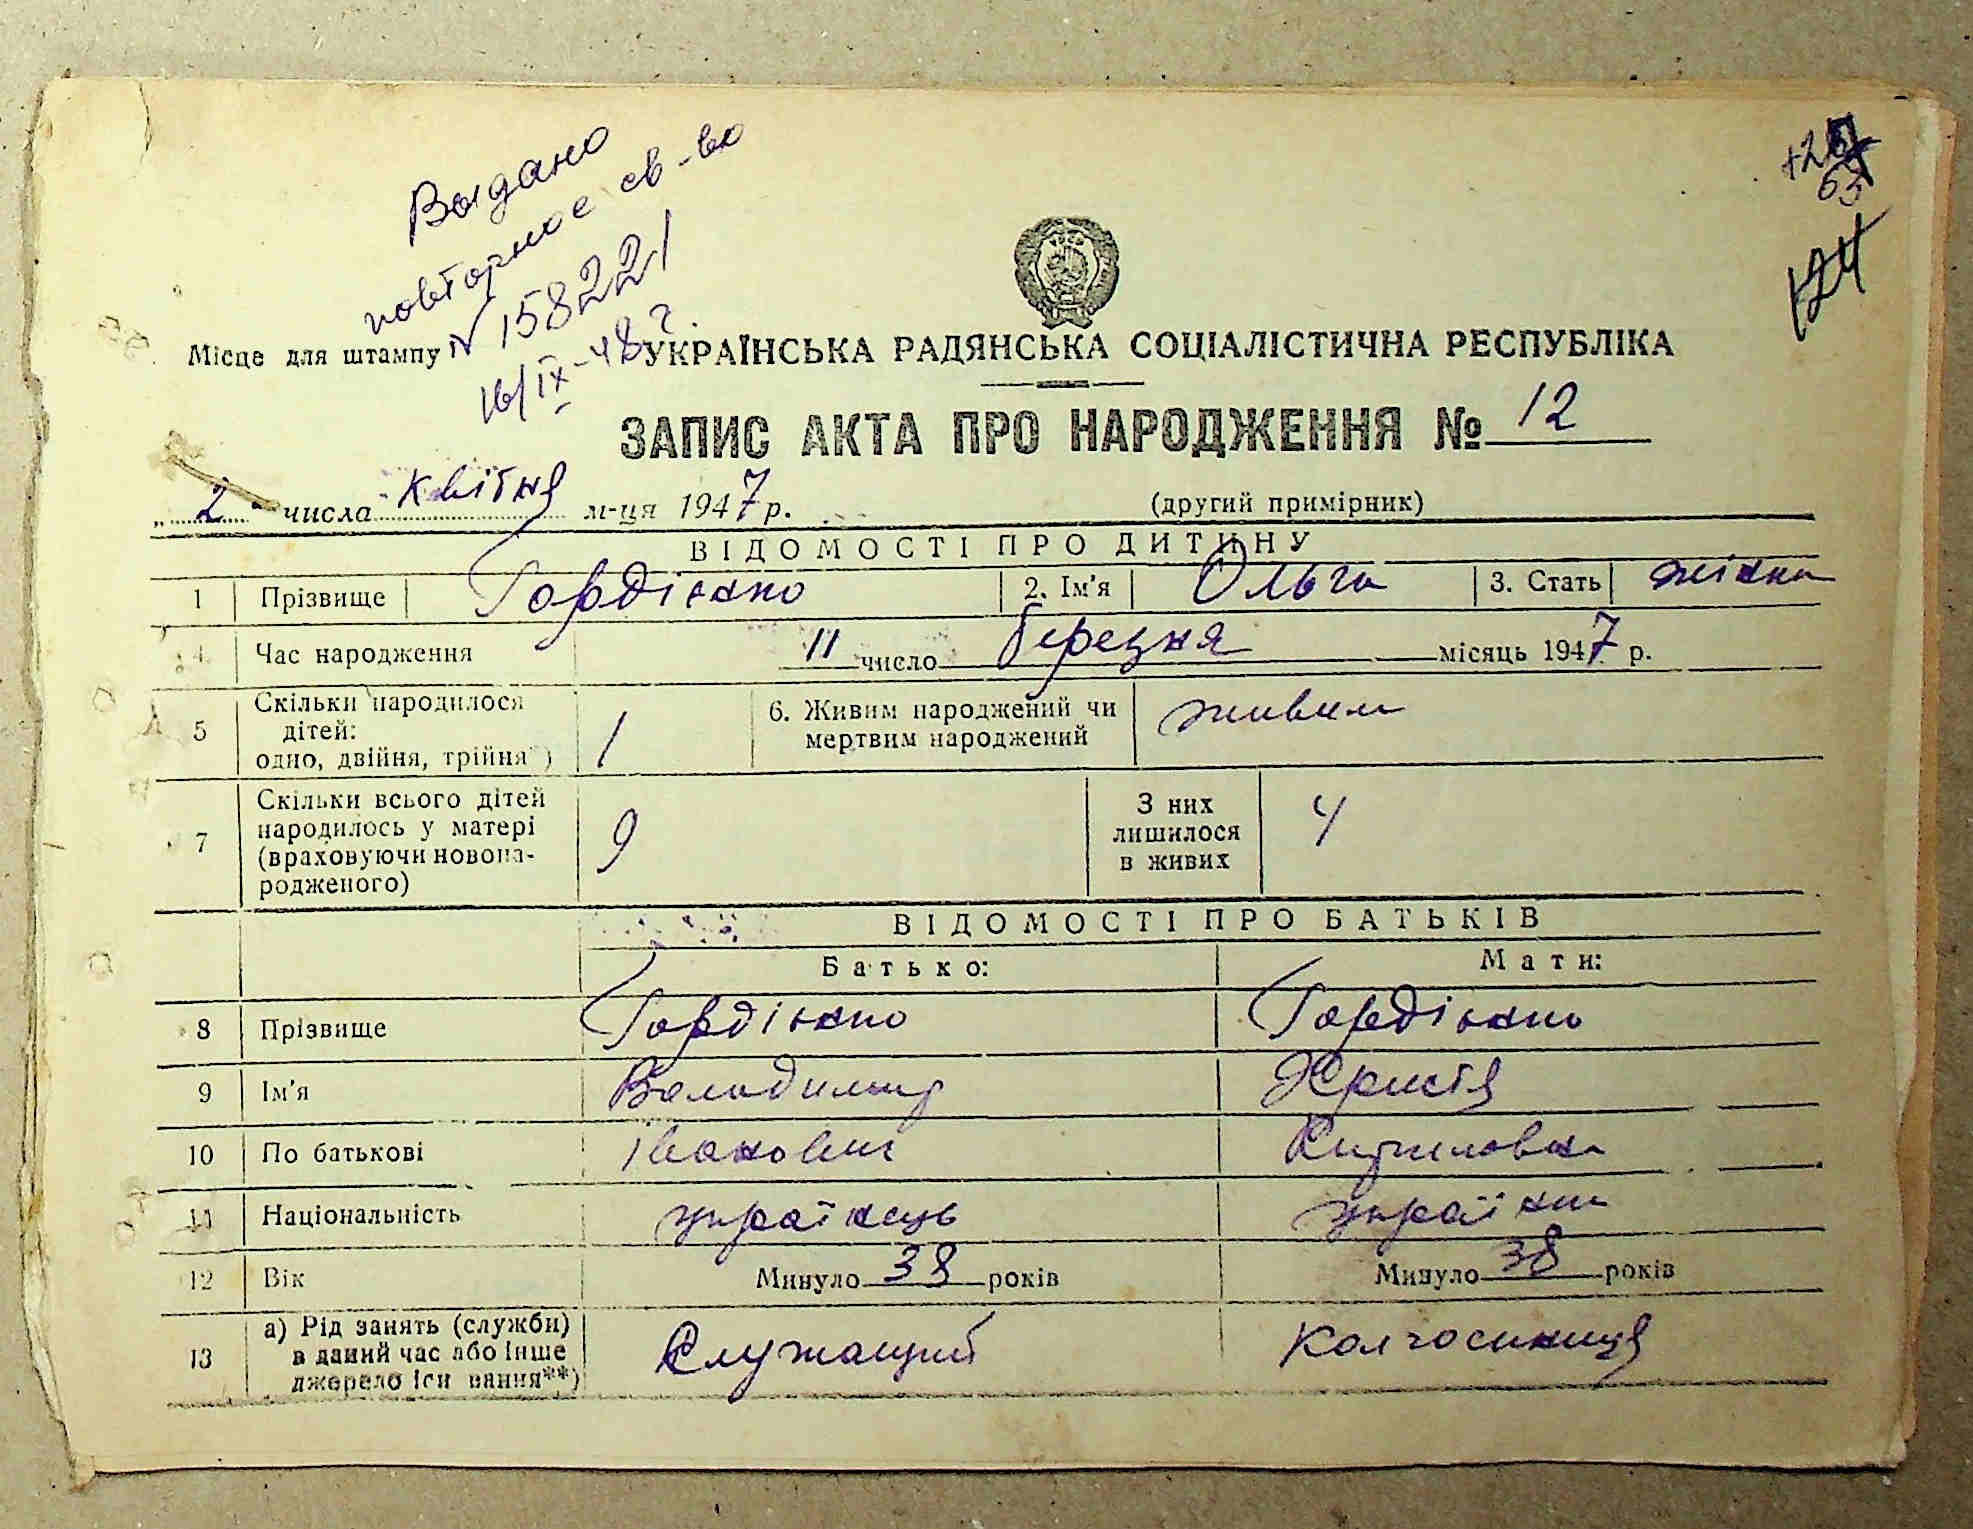 Выдано
повторное св-во
N 158221
16/IX-48 г.
Місце для штампу
УКРАЇНСЬКА РАДЯНСЬКА СОЦІАЛІСТИЧНА РЕСПУБЛІКА
ЗАПИС АКТА ПРО НАРОДЖЕННЯ № 12
„2“ числа квітня м-ця 1947 р. (другий примірник)
ВІДОМОСТІ ПРО ДИТИНУ
1 Прізвище Гордієнко 2. Ім'я Ольга 3. Стать жіноч
4 Час народження 11 число березня місяць 1947 р.
5 Скільки народилося дітей: одно, двійня, трійня*) 1 6. Живим народжений чи мертвим народжений живим
7 Скільки всього дітей народилось у матері (враховуючи новонародженого) 9 З них лишилося в живих 4
ВІДОМОСТІ ПРО БАТЬКІВ
Батько: Мати:
8 Прізвище Гордієнко Гордієнко
9 Ім'я Володимир Христя
10 По батькові Іванович Кириловна
11 Національність українець українк
12 Вік Минуло 38 років Минуло 38 років
13 а) Рід занять (служби) в даний час або інше джерело існування**) Служащий Колгоспниця